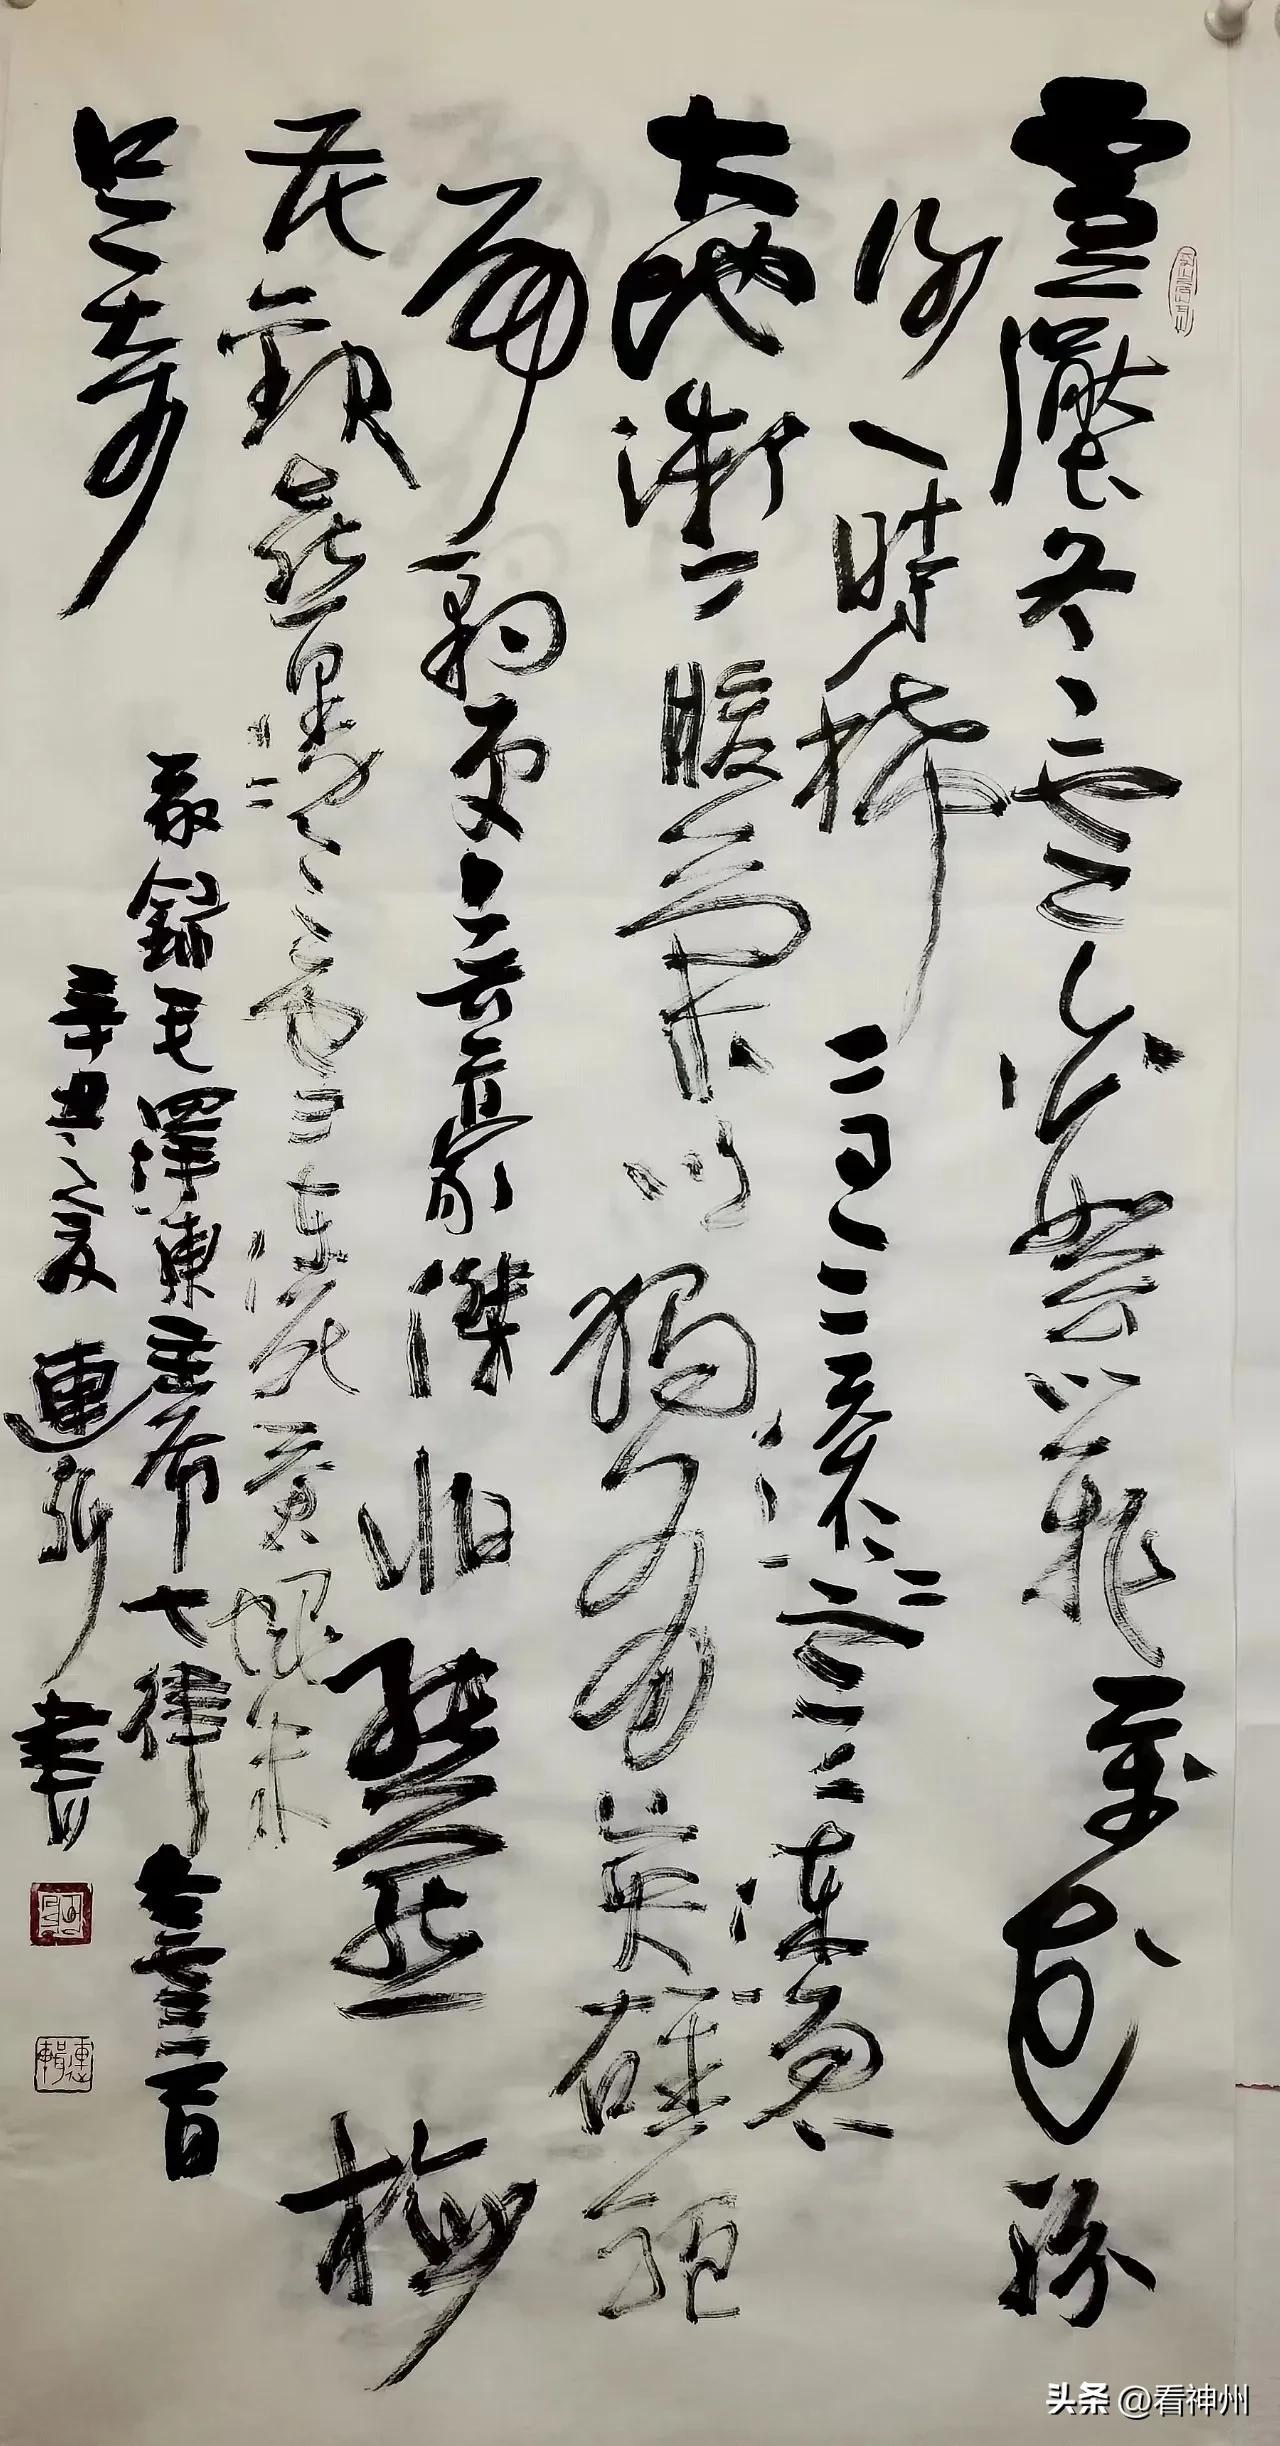 雪壓冬雲白絮飛萬花紛
謝一時稀高天滾滾寒流急
大地微微暖氣吹獨有英雄驅
虎豹更無豪傑怕熊羆梅
花歡喜漫天雪凍死蒼蠅未
足奇
錄毛澤東主席七律冬雲一首
辛丑之夏 連輯書
連輯
头条 @看神州